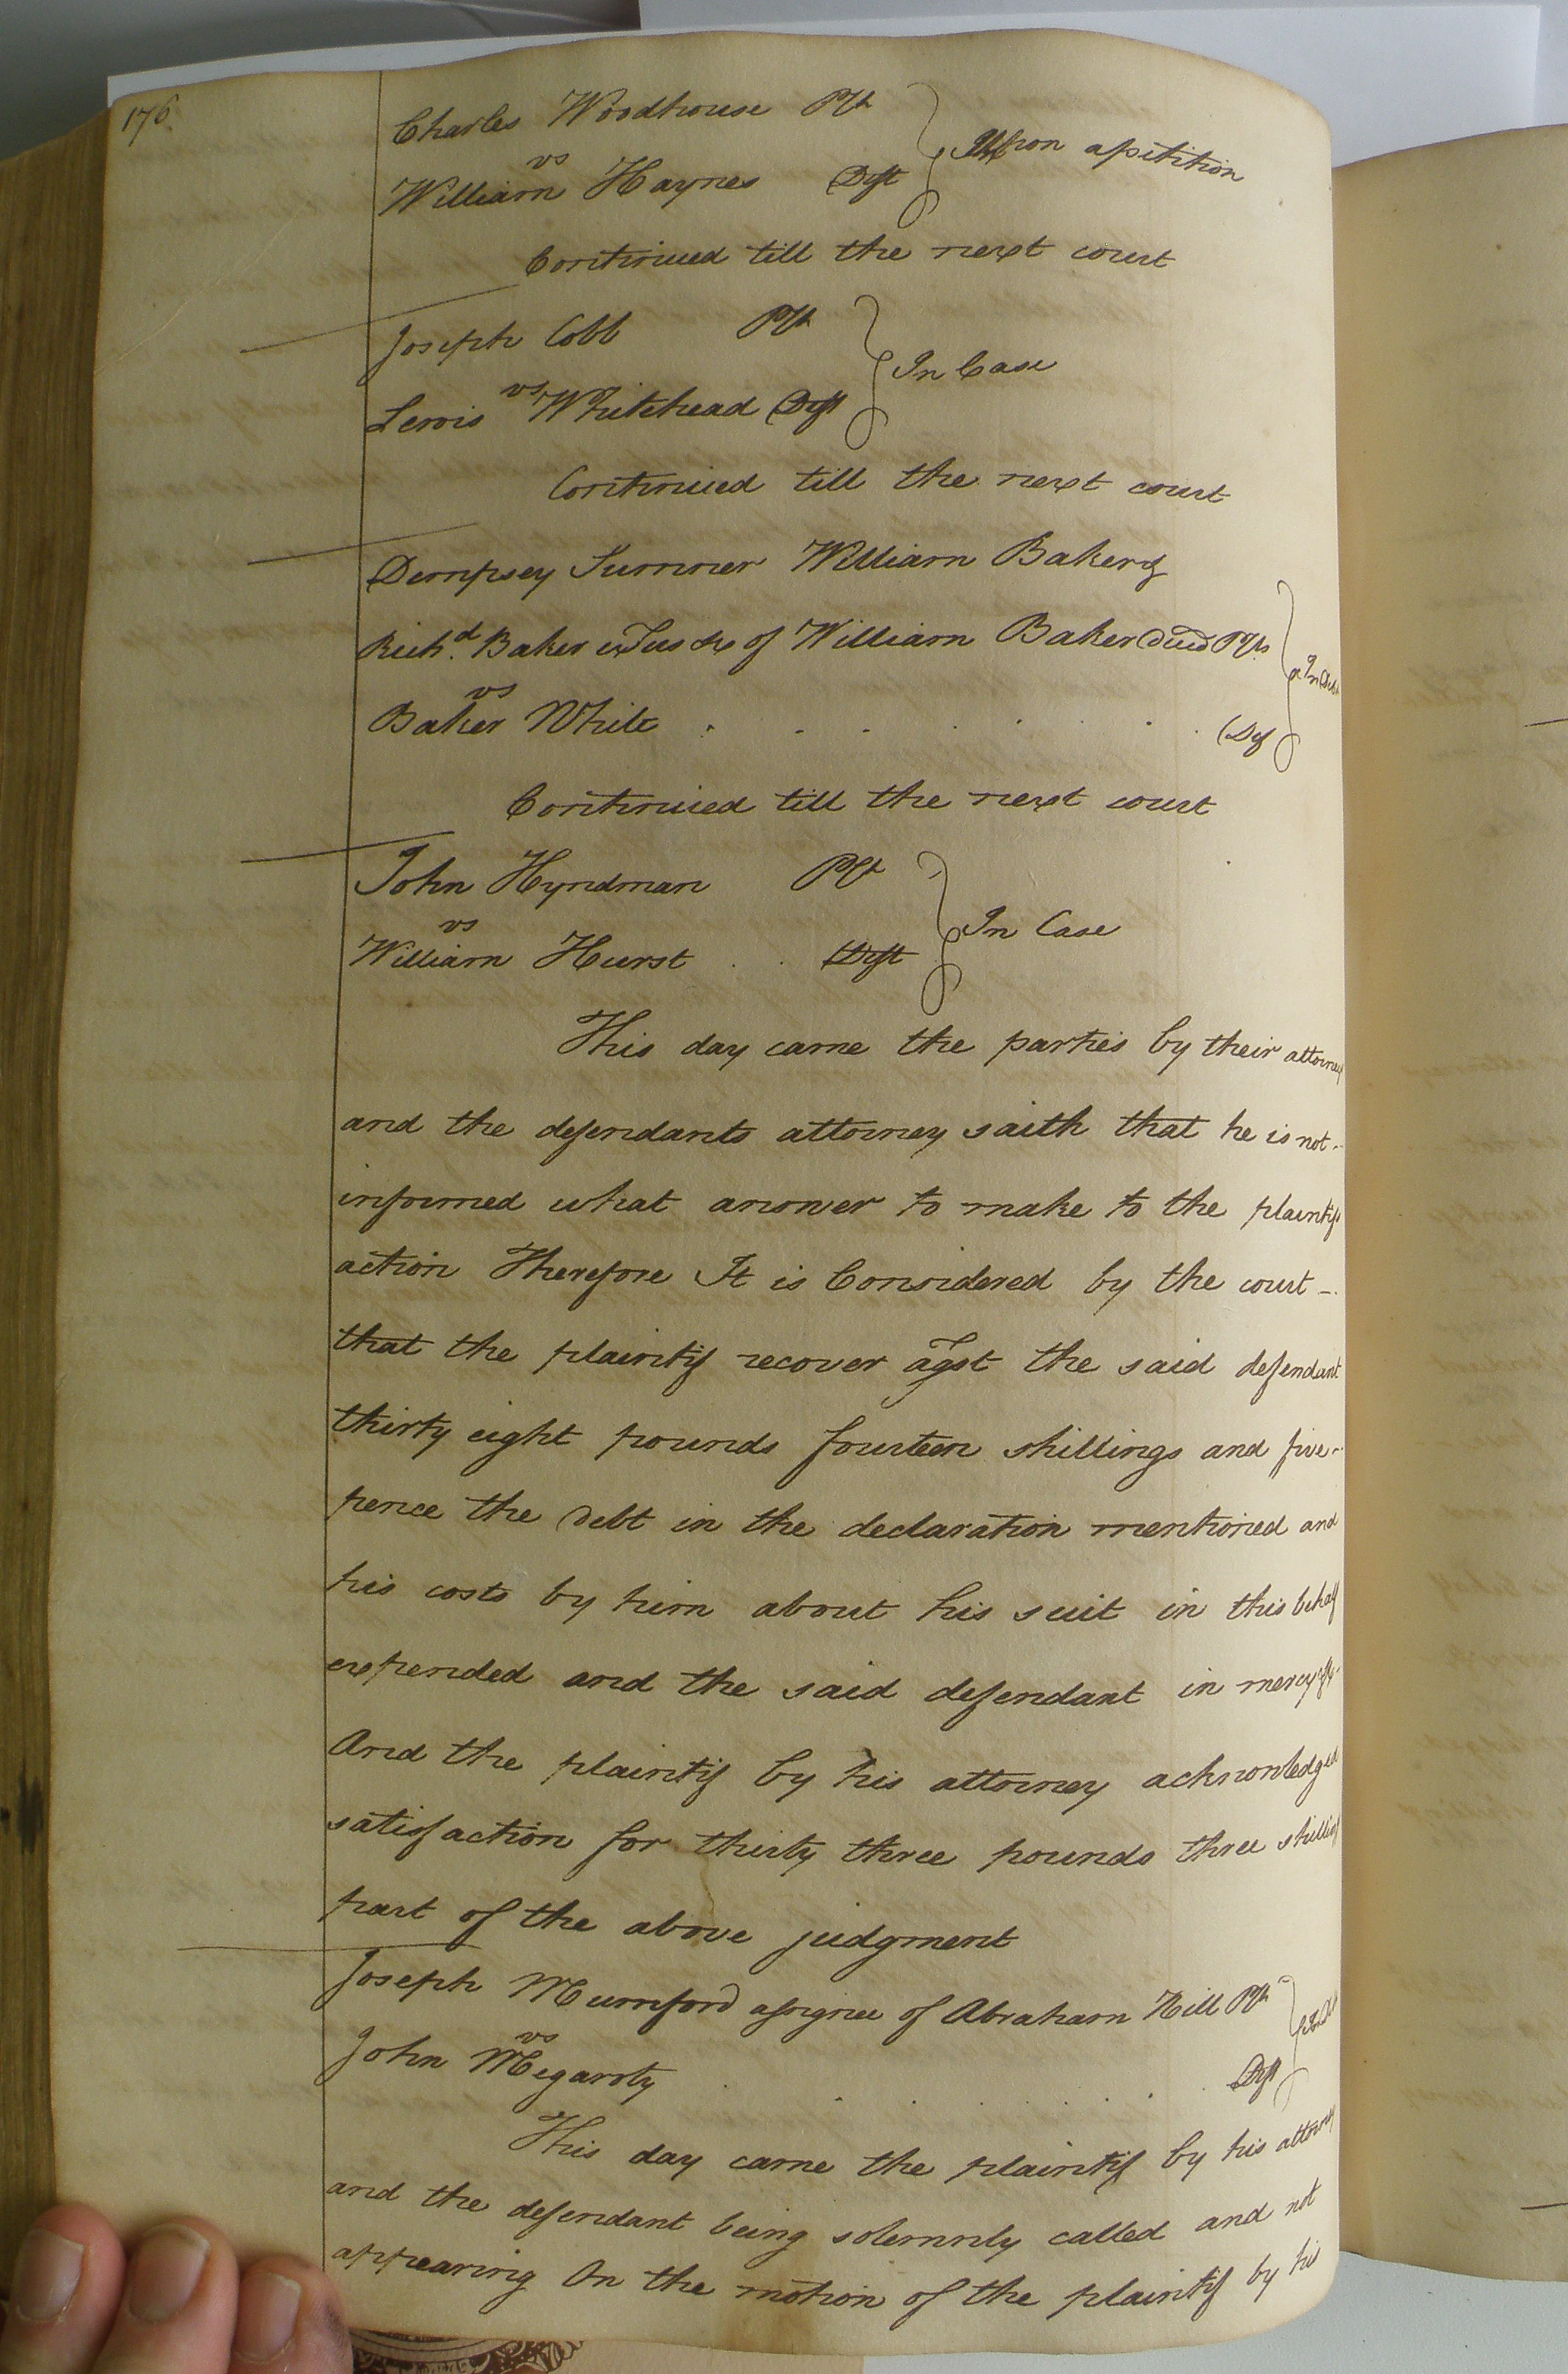 176
Charles Woodhouse Plt
vs
Upon a petition
William Haynes Deft
Continued till the next court
Joseph Cobb Plt
vs
In Case
Lewis Whitehead Deft
Continued till the next court
Dempsey Sumner William Baker &
Richd. Baker of William Baker decd Plts
vs
In
Baker White Def
Continued till the next court
John Hyndman Plt
vs
In Case
William Hurst Deft
This day came the parties by their attorney
and the defendants attorney saith that he is not
informed what answer to make to the plaintifs
action Therefore It is Considered by the court
that the plaintif recover agst the said defendant
thirty eight pounds fourteen shillings and five
pence the debt in the declaration mentioned and
his costs by him about his suit in this behalf
expended and the said defendant in mercy &c
And the plaintif by his attorney acknowledged
satisfaction for thirty three pounds three shillings
part of the above judgment
Joseph Mumford assignee of Abraham Hill Plt
vs
John Megarrty Deft
This day came the plaintif by his attorney
and the defendant being solemnly called and not
appearing On the motion of the plaintif by his